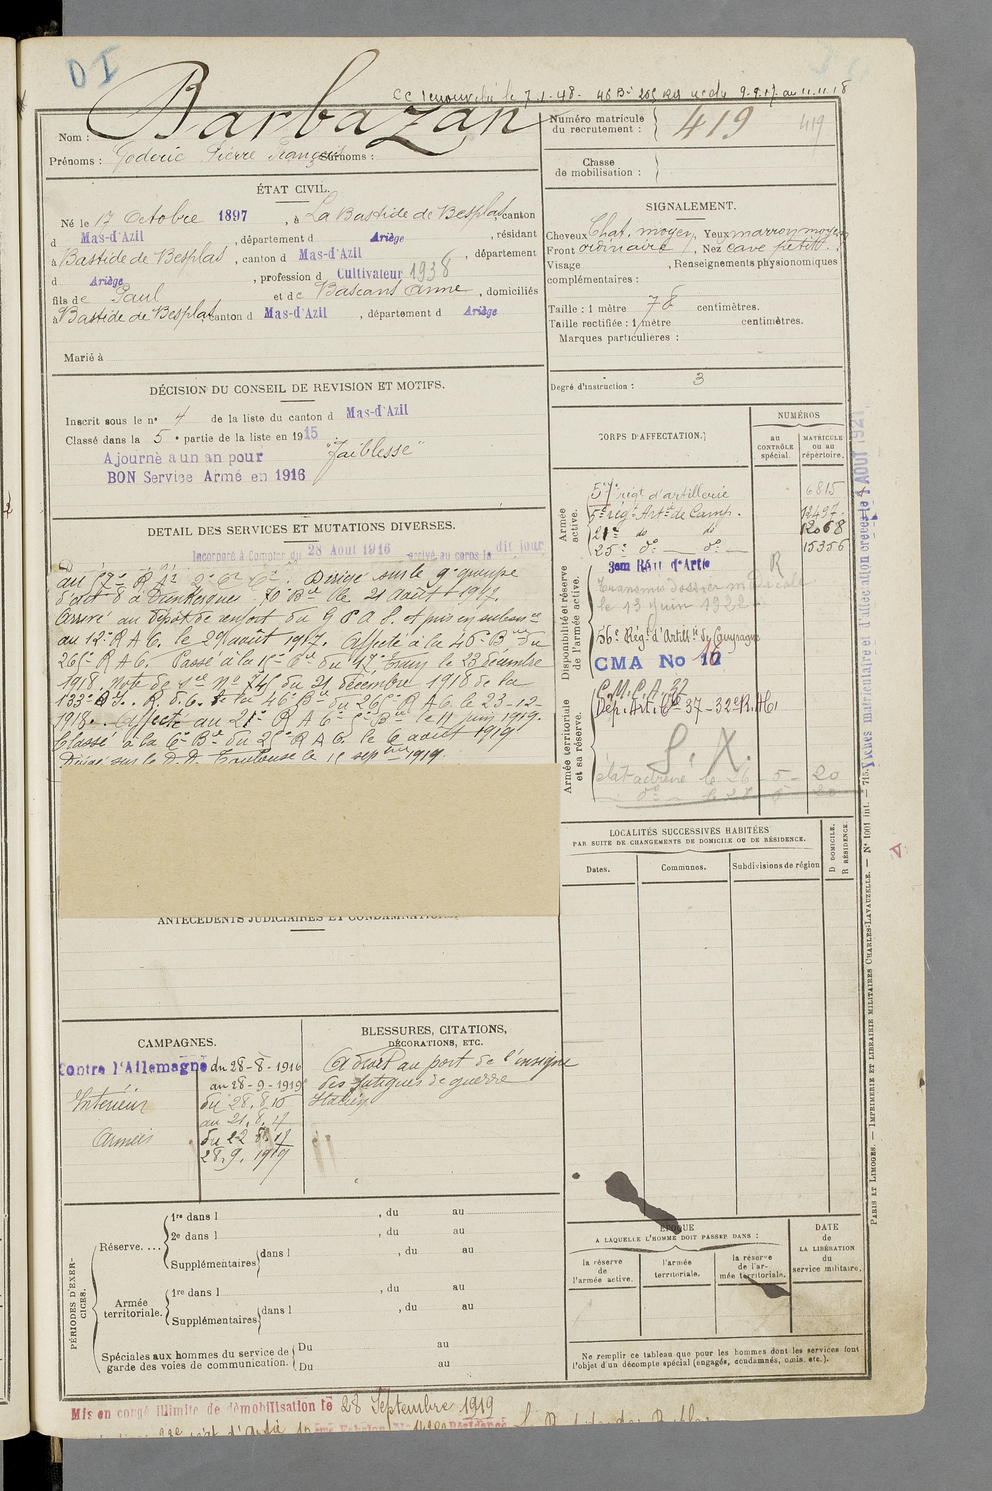 D I
CC renouvelée le 7-1-48- 46 Bie 265 RA du 9.9.17 au 11.11.18
Nom : Barbazan
Prénoms : Goderic Pierre François Surnoms :
Numéro matricule du recrutement : 419
419
Classe de mobilisation :
ÉTAT CIVIL.
Né le 17 Octobre 1897, à La Bastide de Besplas, canton
d Mas-d'Azil, département d Ariège, résidant
à Bastide de Besplas, canton d Mas-d'Azil, département
d Ariège, profession d Cultivateur 1938
fils de Paul et de Bascans Anne, domiciliés
à Bastide de Besplas canton d Mas-d'Azil, département d Ariège
Marié à
SIGNALEMENT.
Cheveux Chat. moyen, Yeux marron moyen
Front ordinaire, Nez cave petit.
Visage , Renseignements physionomiques
complémentaires :
Taille : 1 mètre 78 centimètres.
Taille rectifiée : 1 mètre centimètres.
Marques particulières :
Degré d'instruction : 3
DÉCISION DU CONSEIL DE REVISION ET MOTIFS.
Inscrit sous le n° 4 de la liste du canton d Mas-d'Azil
Classé dans la 5e partie de la liste en 1915
Ajourné a un an pour "Faiblesse"
BON Service Armé en 1916
DETAIL DES SERVICES ET MUTATIONS DIVERSES.
Incorporé à Compter du 28 Aout 1916 arrivé au corps le dit jour
au 57e R Aie 2e Cr Cie. Dirigé sur le 9e groupe
d'art à Dunkerques 70e Bie le 21 Août 1917.
Arrivé au dépôt de renfort du G P A 8 et mis en subsce
au 12e R A C. le 29 août 1917. Affecté à la 46e Bie du
265e R A C. Passé à la 1e Cie du 17e Train le 23 décembre
1918. Note de sce No 745 du 21 décembre 1918 de la
133e D.I. R. d. C. à la 46e Bie du 265e R A C. le 23-12-
1918. Affecté au 21e R A C 6e Bie le 11 juin 1919.
Classé à la 6e Bie du 25e R A C. le 6 août 1919
Dirigé sur le D.D. Toulouse le 15 septbre 1919.
CORPS D'AFFECTATION.
NUMÉROS
au CONTRÔLE spécial.
MATRICULE ou au répertoire.
Armée active.
57e régt d'artillerie 6815
5e régt Artie de Camp. 12497
21e do do 12068
25e do do 15356
Disponibilité et réserve de l'armée active.
3em Régt d'Artie R
Transmis dossier médical
le 13 Juin 1922.
56e Régt d'Artillie de Campagne
CMA No 17 16
Armée territoriale et sa réserve.
C.M.C.A 37
Dép. Art. Cie 37 - 32e R.A.
S. X.
État adressé le 26 - 5 - 20
do le 28 - 20
ANTÉCÉDENTS JUDICIAIRES ET CONDAMNATIONS.
LOCALITÉS SUCCESSIVES HABITÉES
PAR SUITE DE CHANGEMENTS DE DOMICILE OU DE RÉSIDENCE.
Dates.
Communes.
Subdivisions de région
D DOMICILE.
R RÉSIDENCE.
CAMPAGNES.
Contre l'Allemagne du 28-8-1916
au 28-9-1919
Intérieur du 28.8.16
au 21.8.17
Armées du 22 8.17
28.9.1919
BLESSURES, CITATIONS,
DÉCORATIONS, ETC.
A droit au port de l'insigne
des fatigues de guerre
Italien
PÉRIODES D'EXERCICES.
Réserve....
1re dans l , du au
2e dans l , du au
Supplémentaires dans l , du au
Armée territoriale.
1re dans l , du au
Supplémentaires dans l , du au
Spéciales aux hommes du service de garde des voies de communication.
Du au
Du au
ÉPOQUE
A LAQUELLE L'HOMME DOIT PASSER DANS :
la réserve de l'armée active.
l'armée territoriale.
la réserve de l'armée territoriale.
DATE de LA LIBÉRATION du service militaire.
Ne remplir ce tableau que pour les hommes dont les services font
l'objet d'un décompte spécial (engagés, condamnés, omis, etc.).
PARIS ET LIMOGES. — IMPRIMERIE ET LIBRAIRIE MILITAIRES CHARLES-LAVAUZELLE. — N° 1001 int. — 715.
Fiches matriculaire et d'affectation créées le 4 AOUT 1921
Mis en congé illimité de démobilisation le 28 Septembre 1919